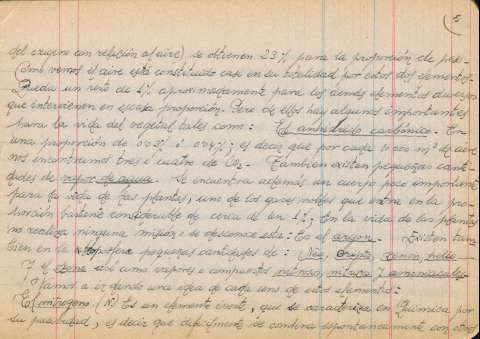 5
del oxigeno con relación al aire) se obtienen 23% para la proporción de peso
Como vemos el aire está constituido casi en su totalidad por estos dos elementos.
Queda un resto de 1% aproximadamente para los demás elementos diversos
que intervienen en escasa proporción. Pero de ellos hay algunos importantes
para la vida del vegetal tales como: El anhidrido carbónico. En
una proporción de 0'03% ó 0'04%; es decir que por cada 10.000 m³ de aire
nos encontramos tres ó cuatro de CO₂. También existen pequeñas canti-
dades de vapor de agua. Se encuentra además un cuerpo poco importante
para la vida de las plantas, uno de los gases nobles que entra en la pro-
porción bastante considerable de cerca de un 1%; En la vida de las plantas
no realiza ninguna misión o se desconoce esta: Es el argon. Existen tam-
bien en la atmosfera pequeñas cantidades de: Neo, Cripto, xenon, helio
Y el ozono así como vapores o compuestos nitroso, nitrico y amoniacales
Vamos a ir dando una idea de cada uno de estos elementos:
El nitrogeno (N) Es un elemento inerte, que se caracteriza en Quimica por
su pasividad, es decir que dificilmente se combina espontaneamente con otros